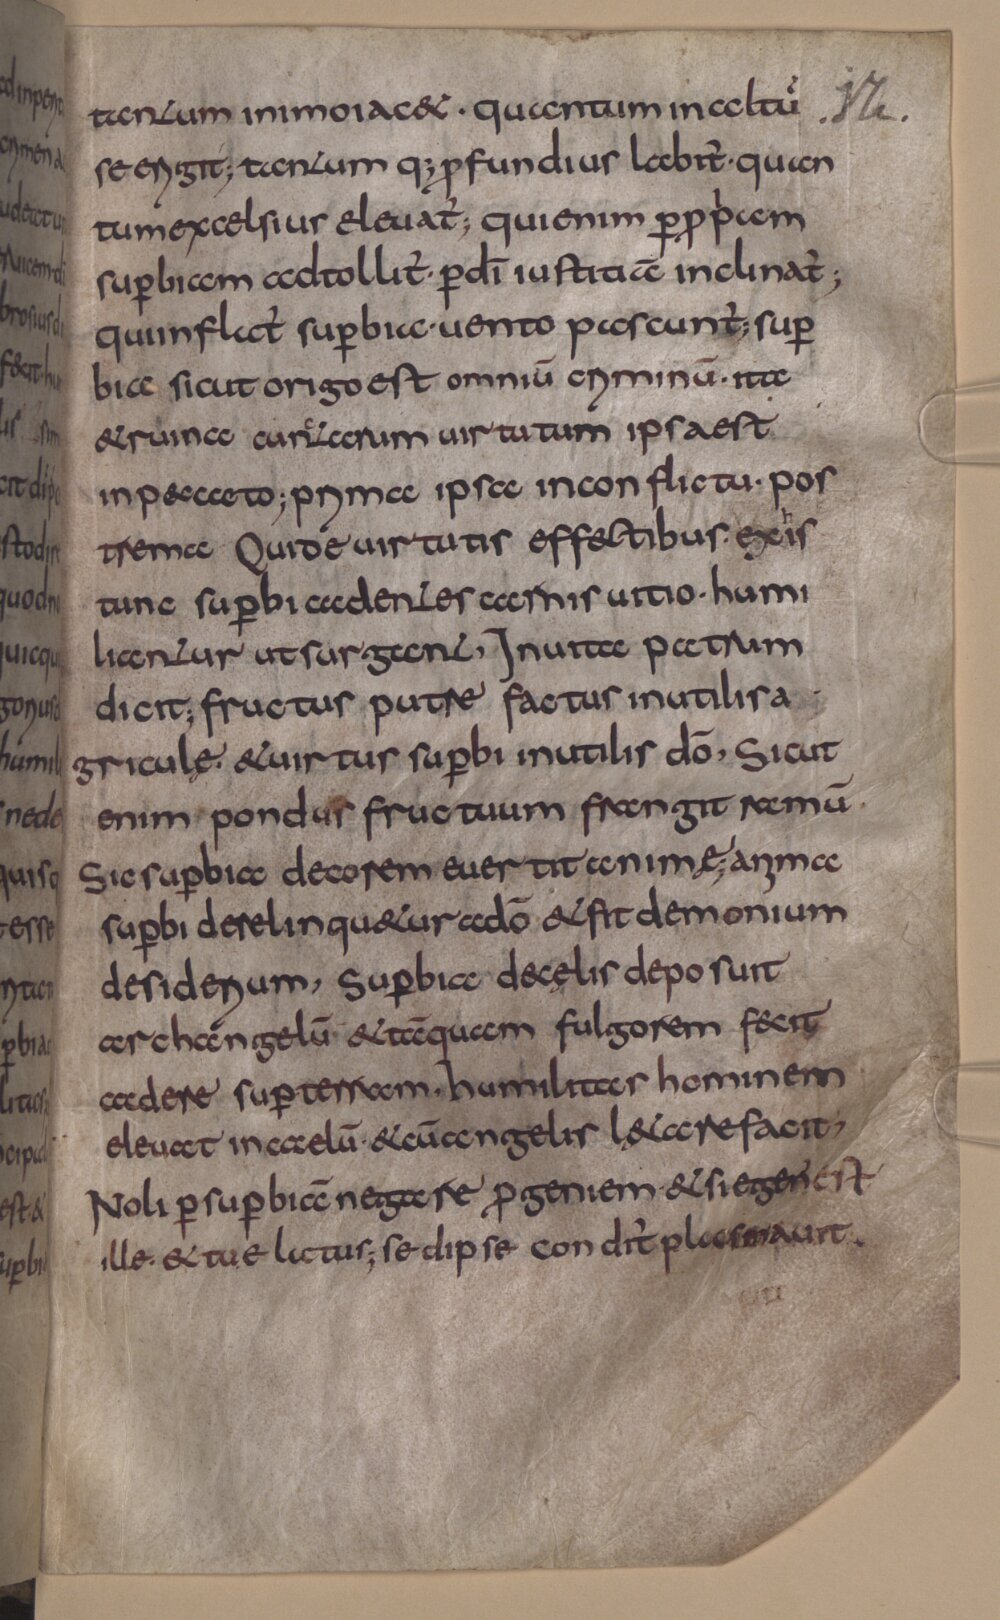 tantum inimo iacet · quantum in altũ .12.
se erigit; tantum q; ꝓfundius labit᷑ · quan
tum excelsius eleuat᷑; qui enim ꝑ ꝓpriam
suꝑbiam adtollit᷑ · ꝑ dī iustitiā inclinat᷑;
qui inflat᷑ suꝑbia · uento pascunt᷑; suꝑ
bia sicut origo est omniū criminū · ita
& ruina cunctarum uirtutum ipsa est
in peccato; prima ipsa in conflictu · pos
trema Qui de uirtutis effectibus · existis
tunc suꝑbi cadentes carnis uitio · humi
liantur ut surgant, In uita patrum
dicit; fructus putre factus inutilis a
gricule · & uirtus suꝑbi inutilis dō, Sicut
enim pondus fructuum frangit ramū ·
Sic suꝑbia decorem euertit animę; anima
suꝑbi derelinqu&ur a dō & fit demonium
desiderium, Suꝑbia de cęlis deposuit
archangelū & tāquam fulgorem fecit
cadere suꝑ terram, humilitas hominem
eleuat in caelū & cū angelis l&are facit,
Noli ꝑ suꝑbiā negare ꝓgeniem · & si egen est
ille · & tu elatus; sed ipse condit᷑ plasmauit ·